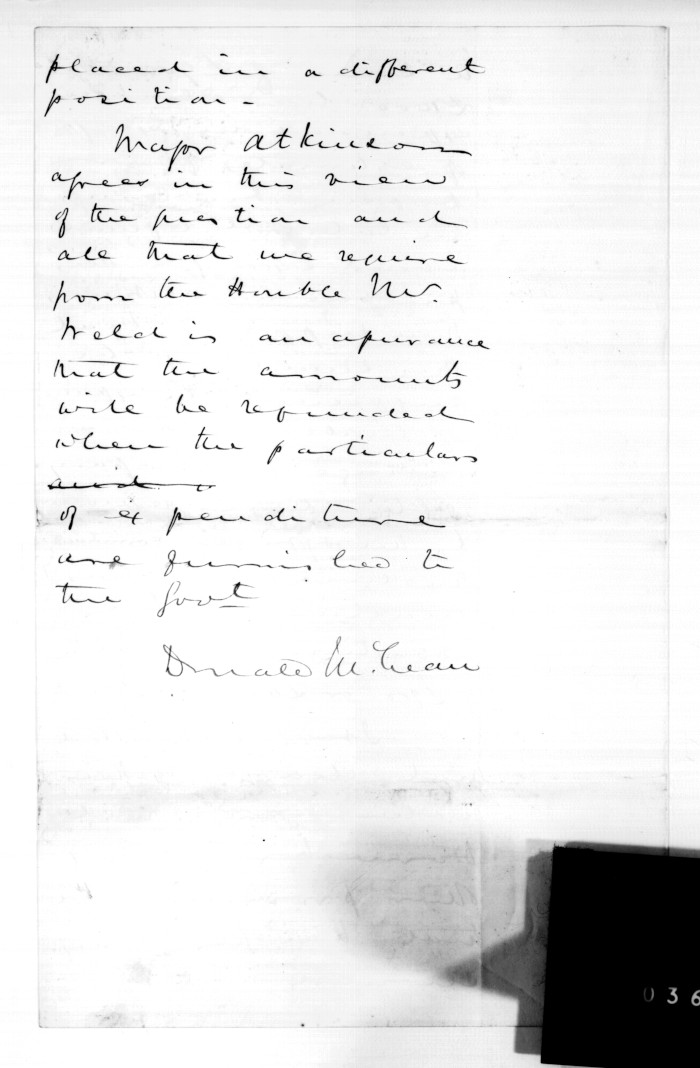 placed in a different
position -
Major Atkinson
agrees in this view
of the question and
all that we require
from the Honble Mr.
Weld is an assurance
that the amounts
will be refunded
when the particulars
of expenditure
are furnished to
the Govt
Donald McLean
036